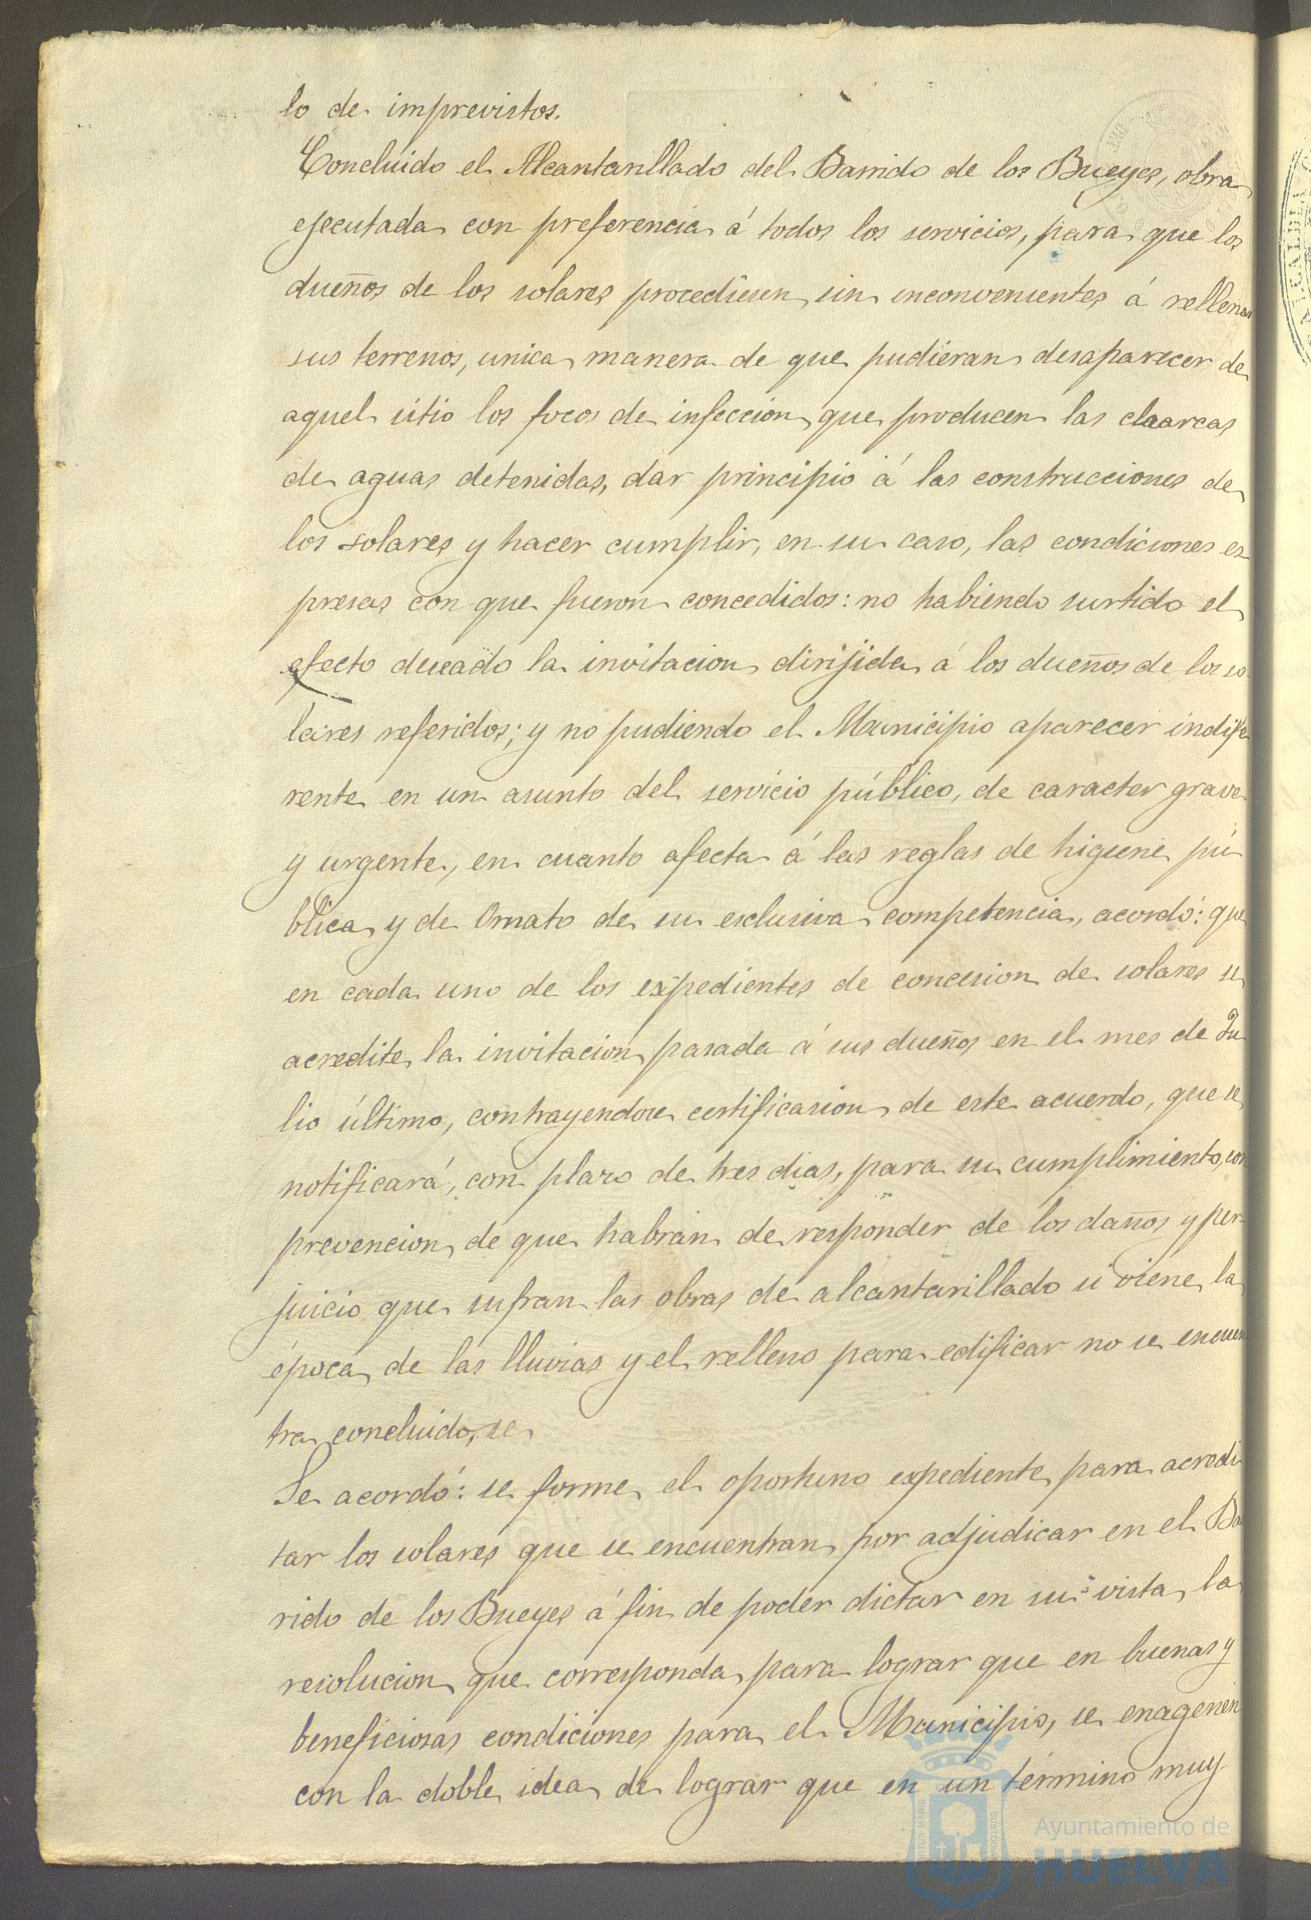 lo de imprevistos.
Concluido el Alcantarillado del Barrido de los Bueyes, obra
ejecutada con preferencia á todos los servicios, para que los
dueños de los solares procediesen sin inconvenientes á rellenar
sus terrenos, unica manera de que pudieran desaparecer de
aquel sitio los focos de infeccion, que producen las claarcas
de aguas detenidas, dar principio á las construcciones de
los solares y hacer cumplir, en su caso, las condiciones es
presas con que fueron concedidos: no habiendo surtido el
efecto deseado la invitacion dirijida á los dueños de los so
lares referidos; y no pudiendo el Municipio aparecer indife
rente en un asunto del servicio público, de caracter grave
y urgente, en cuanto afecta á las reglas de higiene pú
blica y de Ornato de su esclusiva competencia, acordó: que
en cada uno de los expedientes de concesion de solares se
acredite la invitacion pasada á sus dueños en el mes de Ju
lio último, contrayendose certificasion de este acuerdo, que se
notificará, con plazo de tres dias, para su cumplimiento, con
prevencion de que habrán de responder de los daños y per
juicio que sufran las obras de alcantarillado si viene la
época de las lluvias y el relleno para edificar no se encuen
tra concluido, se
Se acordó: se forme el oportuno expediente para acredi
tar los solares que se encuentran por adjudicar en el Ba
rido de los Bueyes á fin de poder dictar en su vista la
resolucion que corresponda para lograr que en buenas y
beneficiosas condiciones para el Municipio, se enagenen
con la doble idea de lograr que en un término muy
Ayuntamiento de
HUELVA